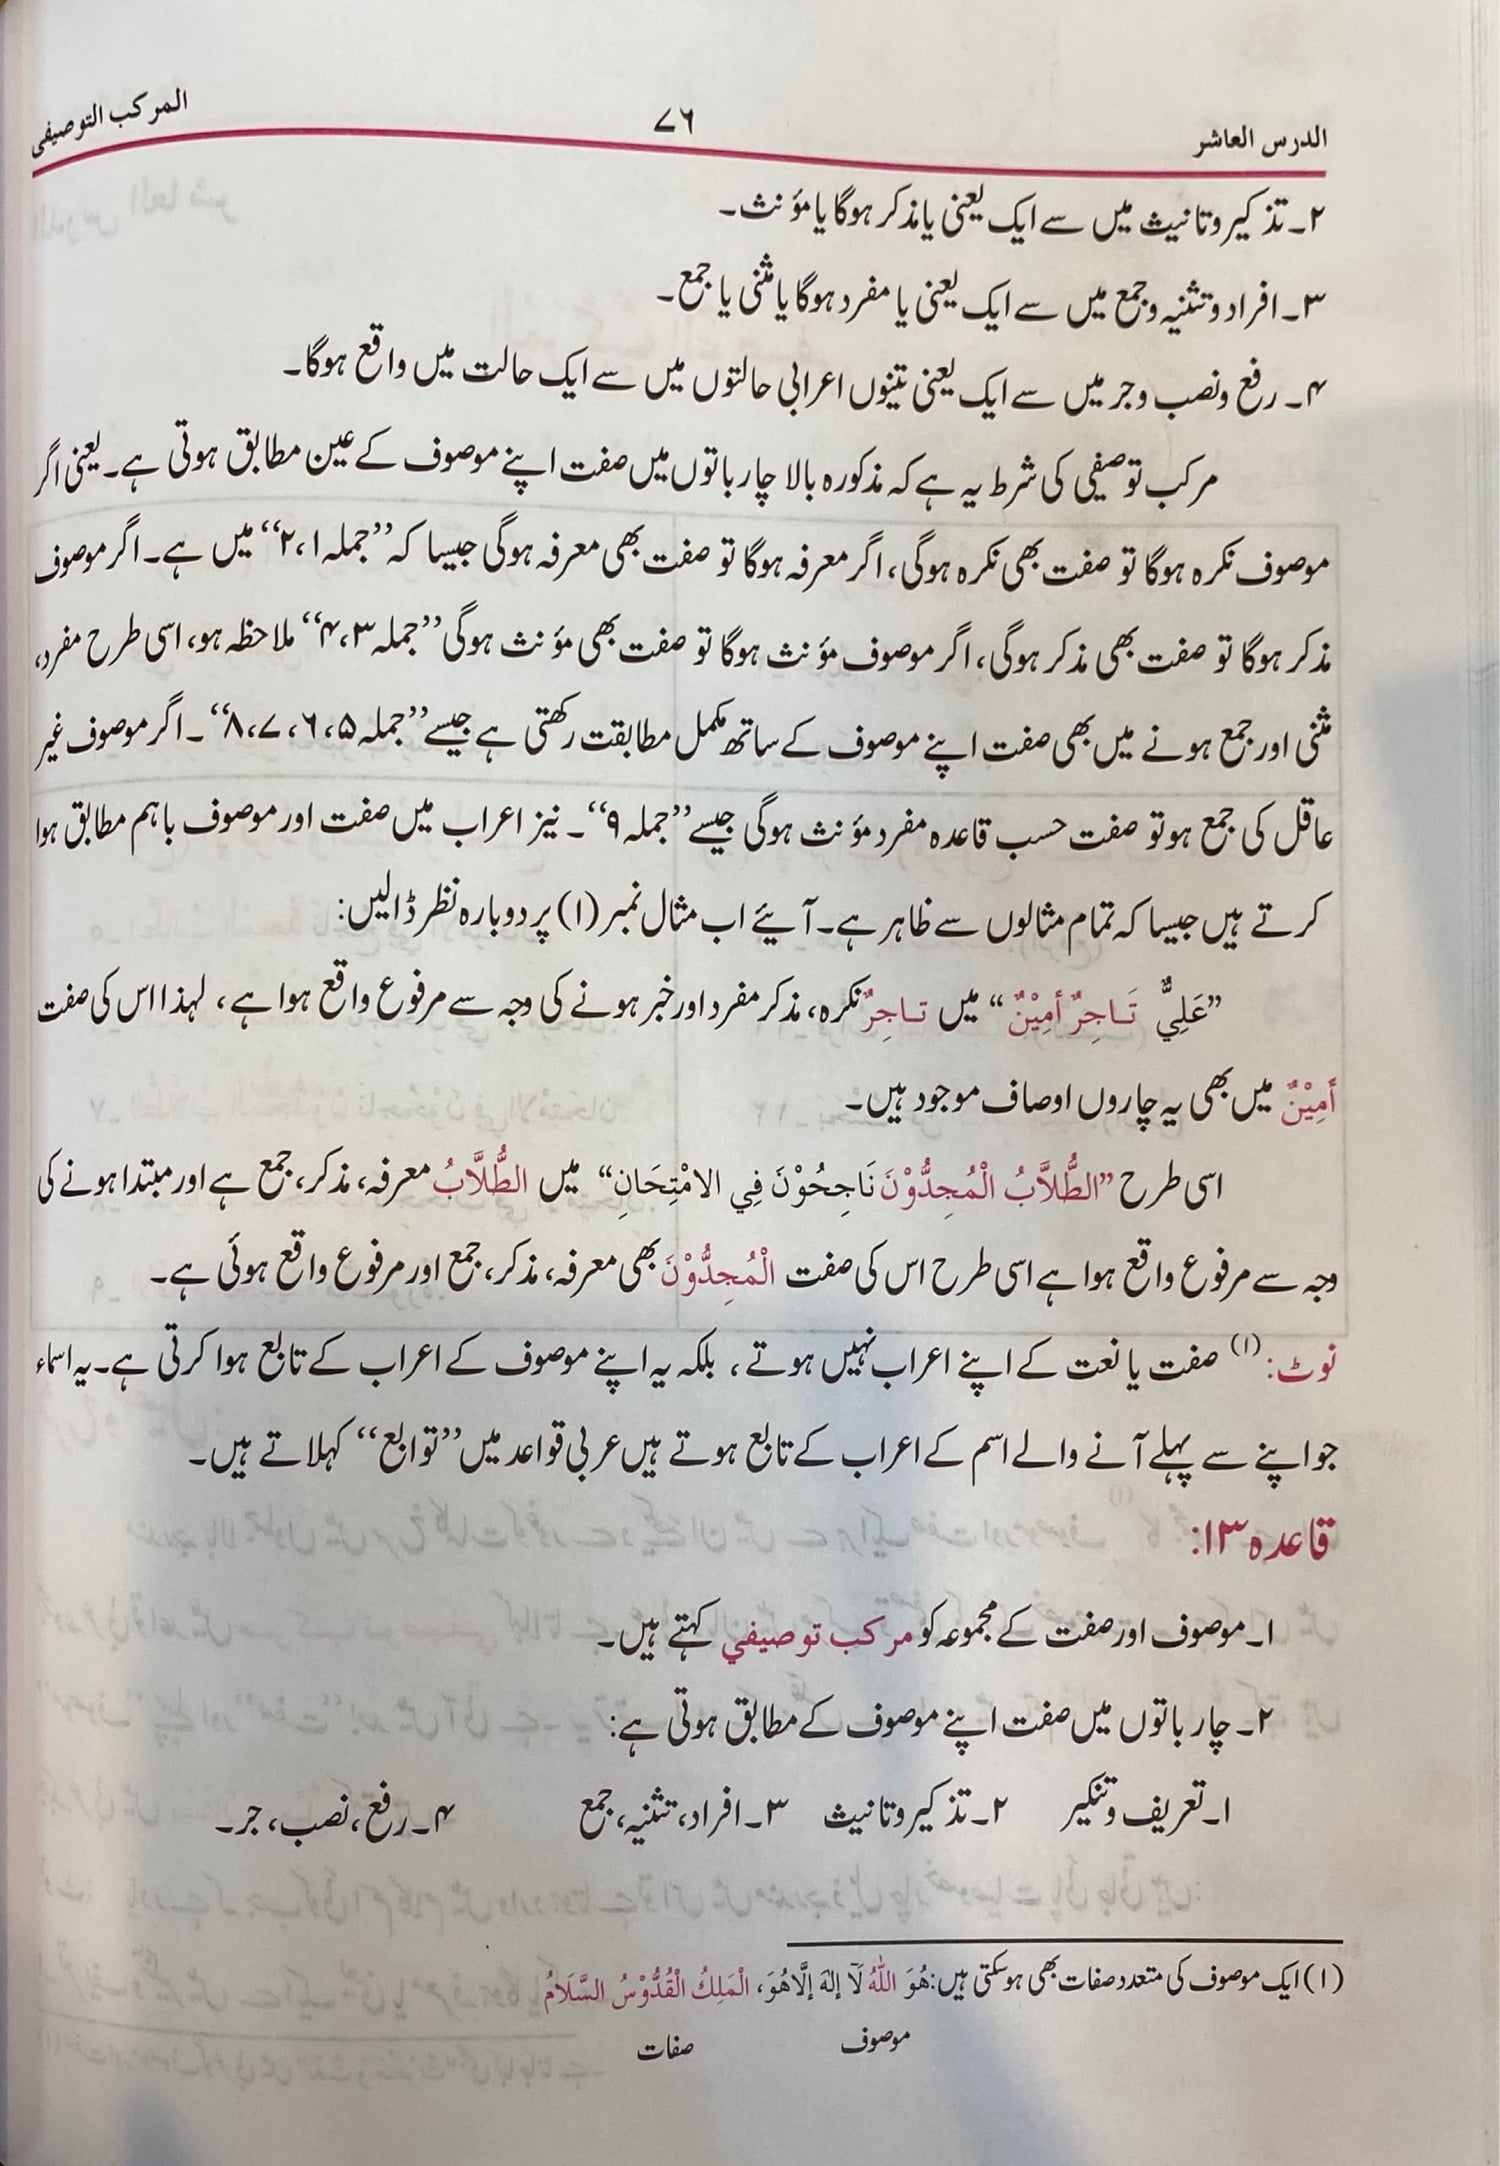 الدرس العاشر ۷۶ المركب التوصيفی
۲۔ تذکیر و تانیث میں سے ایک یعنی یا مذکر ہوگا یا مؤنث۔
۳۔ افراد و تثنیہ و جمع میں سے ایک یعنی یا مفرد ہوگا یا مثنی یا جمع۔
۴۔ رفع و نصب و جر میں سے ایک یعنی تینوں اعرابی حالتوں میں سے ایک حالت میں واقع ہوگا۔
مرکب توصیفی کی شرط یہ ہے کہ مذکورہ بالا چار باتوں میں صفت اپنے موصوف کے عین مطابق ہوتی ہے۔ یعنی اگر
موصوف نکرہ ہوگا تو صفت بھی نکرہ ہوگی، اگر معرفہ ہوگا تو صفت بھی معرفہ ہوگی جیسا کہ ”جملہ ۱،۲“ میں ہے۔ اگر موصوف
مذکر ہوگا تو صفت بھی مذکر ہوگی، اگر موصوف مؤنث ہوگا تو صفت بھی مؤنث ہوگی ”جملہ ۳،۴“ ملاحظہ ہو، اسی طرح مفرد،
مثنی اور جمع ہونے میں بھی صفت اپنے موصوف کے ساتھ مکمل مطابقت رکھتی ہے جیسے ”جملہ ۵، ۶، ۷، ۸“۔ اگر موصوف غیر
عاقل کی جمع ہو تو صفت حسب قاعدہ مفرد مؤنث ہوگی جیسے ”جملہ ۹“۔ نیز اعراب میں صفت اور موصوف باہم مطابق ہوا
کرتے ہیں جیسا کہ تمام مثالوں سے ظاہر ہے۔ آئیے اب مثال نمبر (۱) پر دوبارہ نظر ڈالیں:
”عَلِيٌّ تَاجِرٌ أمِيْنٌ“ میں تاجِرٌ نکرہ، مذکر مفرد اور خبر ہونے کی وجہ سے مرفوع واقع ہوا ہے، لہذا اس کی صفت
أمِيْنٌ میں بھی یہ چاروں اوصاف موجود ہیں۔
اسی طرح ”الطُّلاَّبُ الْمُجِدُّوْنَ نَاجِحُوْنَ فِي الامْتِحَانِ“ میں الطُّلاَّبُ معرفہ، مذکر، جمع ہے اور مبتدا ہونے کی
وجہ سے مرفوع واقع ہوا ہے اسی طرح اس کی صفت الْمُجِدُّوْنَ بھی معرفہ، مذکر، جمع اور مرفوع واقع ہوئی ہے۔
نوٹ: (۱) صفت یا نعت کے اپنے اعراب نہیں ہوتے، بلکہ یہ اپنے موصوف کے اعراب کے تابع ہوا کرتی ہے۔ یہ اسماء
جو اپنے سے پہلے آنے والے اسم کے اعراب کے تابع ہوتے ہیں عربی قواعد میں ”توابع“ کہلاتے ہیں۔
قاعدہ ۱۳:
۱۔ موصوف اور صفت کے مجموعہ کو مرکب توصيفي کہتے ہیں۔
۲۔ چار باتوں میں صفت اپنے موصوف کے مطابق ہوتی ہے:
۱۔ تعریف و تنکیر ۲۔ تذکیر و تانیث ۳۔ افراد، تثنیہ، جمع ۴۔ رفع، نصب، جر۔
(۱) ایک موصوف کی متعدد صفات بھی ہوسکتی ہیں: هُوَ اللّٰهُ لَآ إلهَ إلَّا هُوَ، الْمَلِكُ الْقُدُّوْسُ السَّلَامُ
موصوف صفات